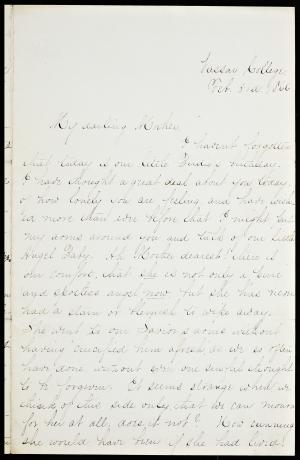 Vassar College
Feb. 3rd 1866
My darling Mother
I havent forgotten
that today is our little birthday.
I have thought a great deal about you today,
& how lonely you are feeling and have wish-
ed more than ever before that I might put
my arms around you and talk of our little
Angel Baby. Ah! Mother dearest! there is
our comfort, that she is not only a pure
and spotless angel now, but she has never
had a stain or blemish to wipe away.
She went to our Savior's arms without
having crucified him afresh, as we so often
have done, without even one sinful thought
to be forgiven. It seems strange when we
think of this side only, that we can mourn
for her at all, does it not? How cunning
she would have been if she had lived!